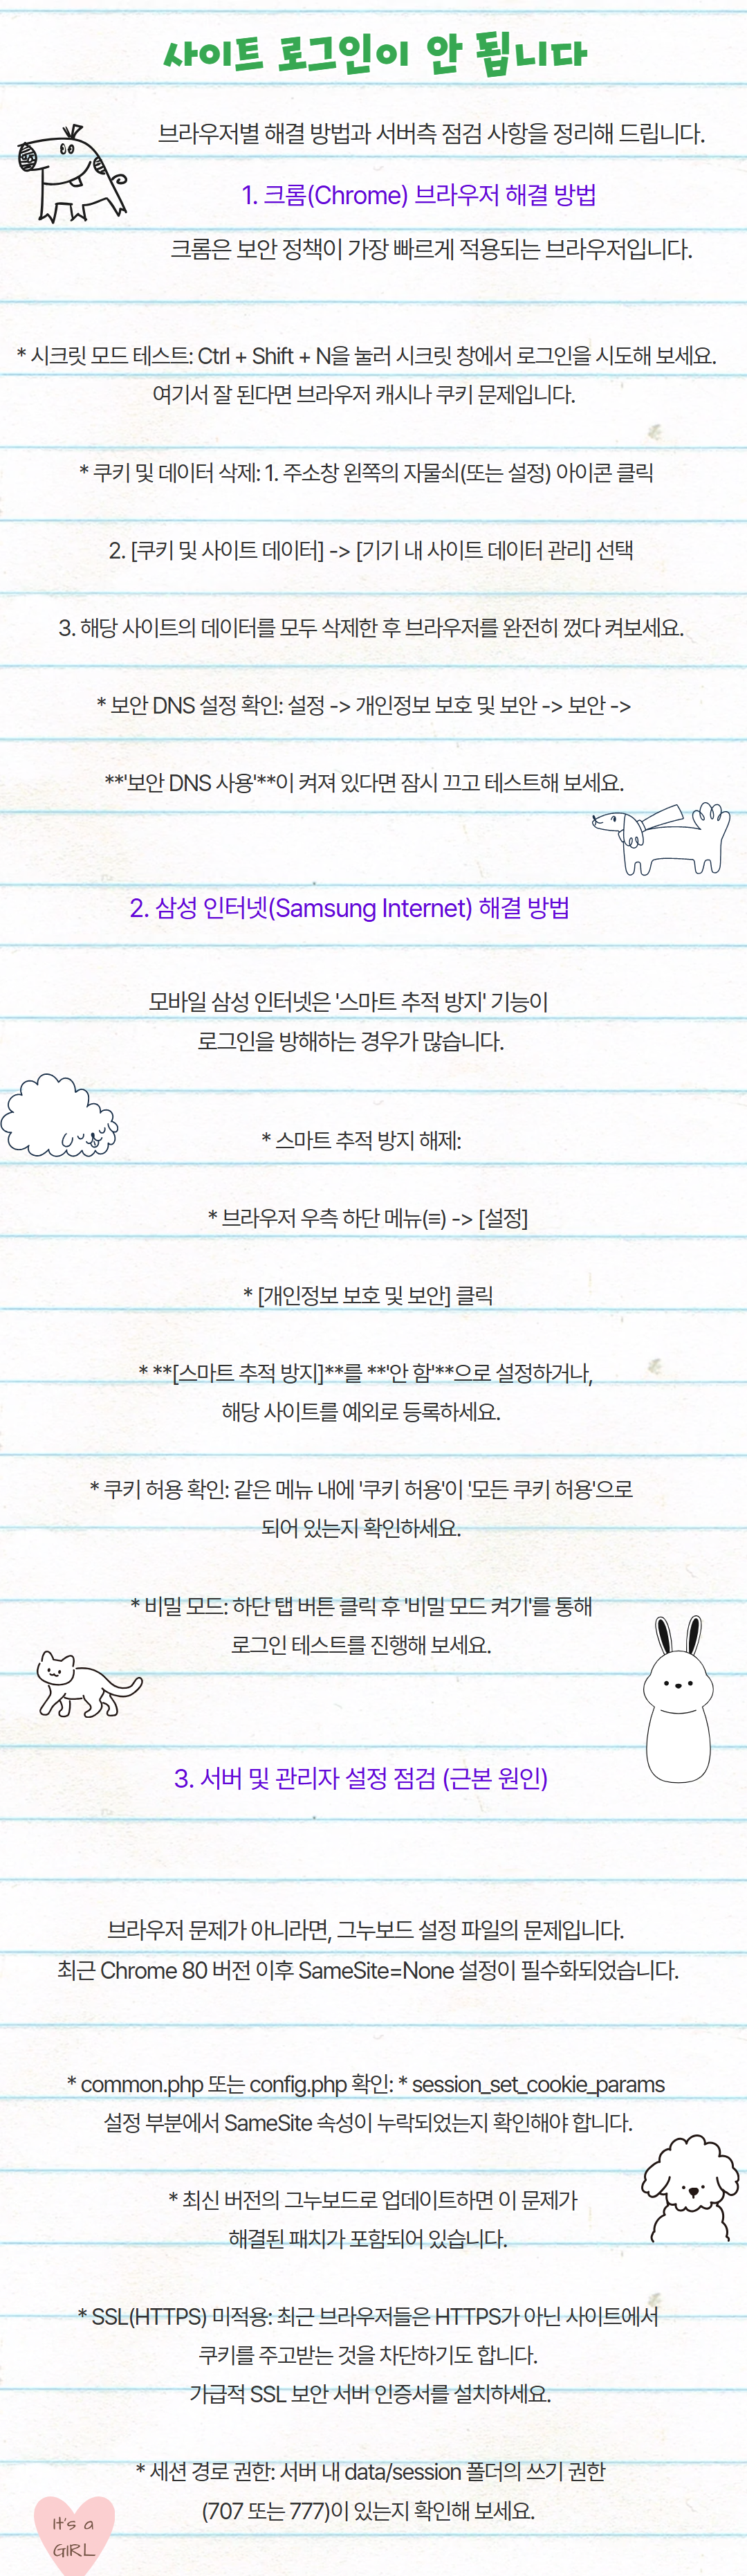 사이트 로그인이 안 됩니다
브라우저별 해결 방법과 서버측 점검 사항을 정리해 드립니다.
1. 크롬(Chrome) 브라우저 해결 방법
크롬은 보안 정책이 가장 빠르게 적용되는 브라우저입니다.
* 시크릿 모드 테스트: Ctrl + Shift + N을 눌러 시크릿 창에서 로그인을 시도해 보세요.
여기서 잘 된다면 브라우저 캐시나 쿠키 문제입니다.
* 쿠키 및 데이터 삭제: 1. 주소창 왼쪽의 자물쇠(또는 설정) 아이콘 클릭
2. [쿠키 및 사이트 데이터] -> [기기 내 사이트 데이터 관리] 선택
3. 해당 사이트의 데이터를 모두 삭제한 후 브라우저를 완전히 껐다 켜보세요.
* 보안 DNS 설정 확인: 설정 -> 개인정보 보호 및 보안 -> 보안 ->
**'보안 DNS 사용'**이 켜져 있다면 잠시 끄고 테스트해 보세요.
2. 삼성 인터넷(Samsung Internet) 해결 방법
모바일 삼성 인터넷은 '스마트 추적 방지' 기능이
로그인을 방해하는 경우가 많습니다.
* 스마트 추적 방지 해제:
* 브라우저 우측 하단 메뉴(≡) -> [설정]
* [개인정보 보호 및 보안] 클릭
* **[스마트 추적 방지]**를 **'안 함'**으로 설정하거나,
해당 사이트를 예외로 등록하세요.
* 쿠키 허용 확인: 같은 메뉴 내에 '쿠키 허용'이 '모든 쿠키 허용'으로
되어 있는지 확인하세요.
* 비밀 모드: 하단 탭 버튼 클릭 후 '비밀 모드 켜기'를 통해
로그인 테스트를 진행해 보세요.
3. 서버 및 관리자 설정 점검 (근본 원인)
브라우저 문제가 아니라면, 그누보드 설정 파일의 문제입니다.
최근 Chrome 80 버전 이후 SameSite=None 설정이 필수화되었습니다.
* common.php 또는 config.php 확인: * session_set_cookie_params
설정 부분에서 SameSite 속성이 누락되었는지 확인해야 합니다.
* 최신 버전의 그누보드로 업데이트하면 이 문제가
해결된 패치가 포함되어 있습니다.
* SSL(HTTPS) 미적용: 최근 브라우저들은 HTTPS가 아닌 사이트에서
쿠키를 주고받는 것을 차단하기도 합니다.
가급적 SSL 보안 서버 인증서를 설치하세요.
* 세션 경로 권한: 서버 내 data/session 폴더의 쓰기 권한
(707 또는 777)이 있는지 확인해 보세요.
It's a
GIRL